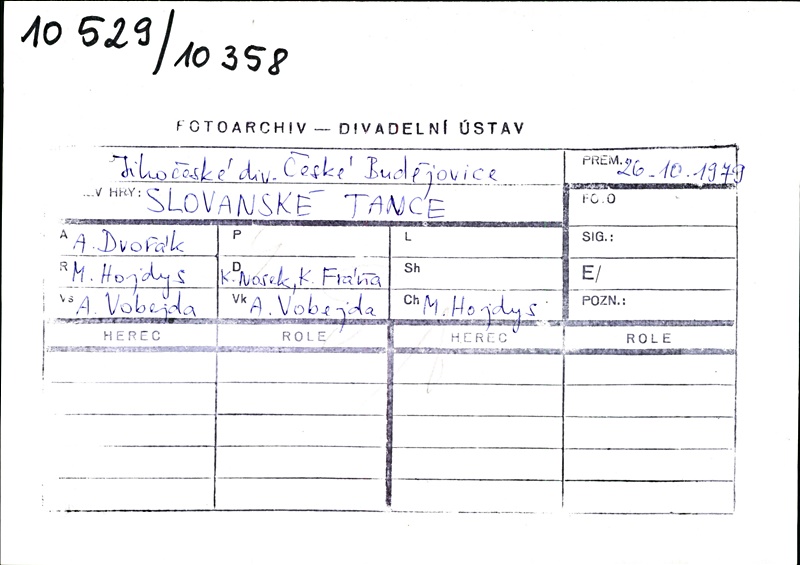 10 529/10 358
FOTOARCHIV — DIVADELNÍ ÚSTAV
Jihočeské div. České Budějovice
PREM. 26.10.1979
V HRY: SLOVANSKÉ TANCE
FOTO
A A. Dvořák
P
L
SIG.:
R M. Hojdys
D K. Nosek, K. Fráňa
Sh
E/
Vs A. Vobejda
Vk A. Vobejda
Ch M. Hojdys
POZN.:
HEREC ROLE HEREC ROLE